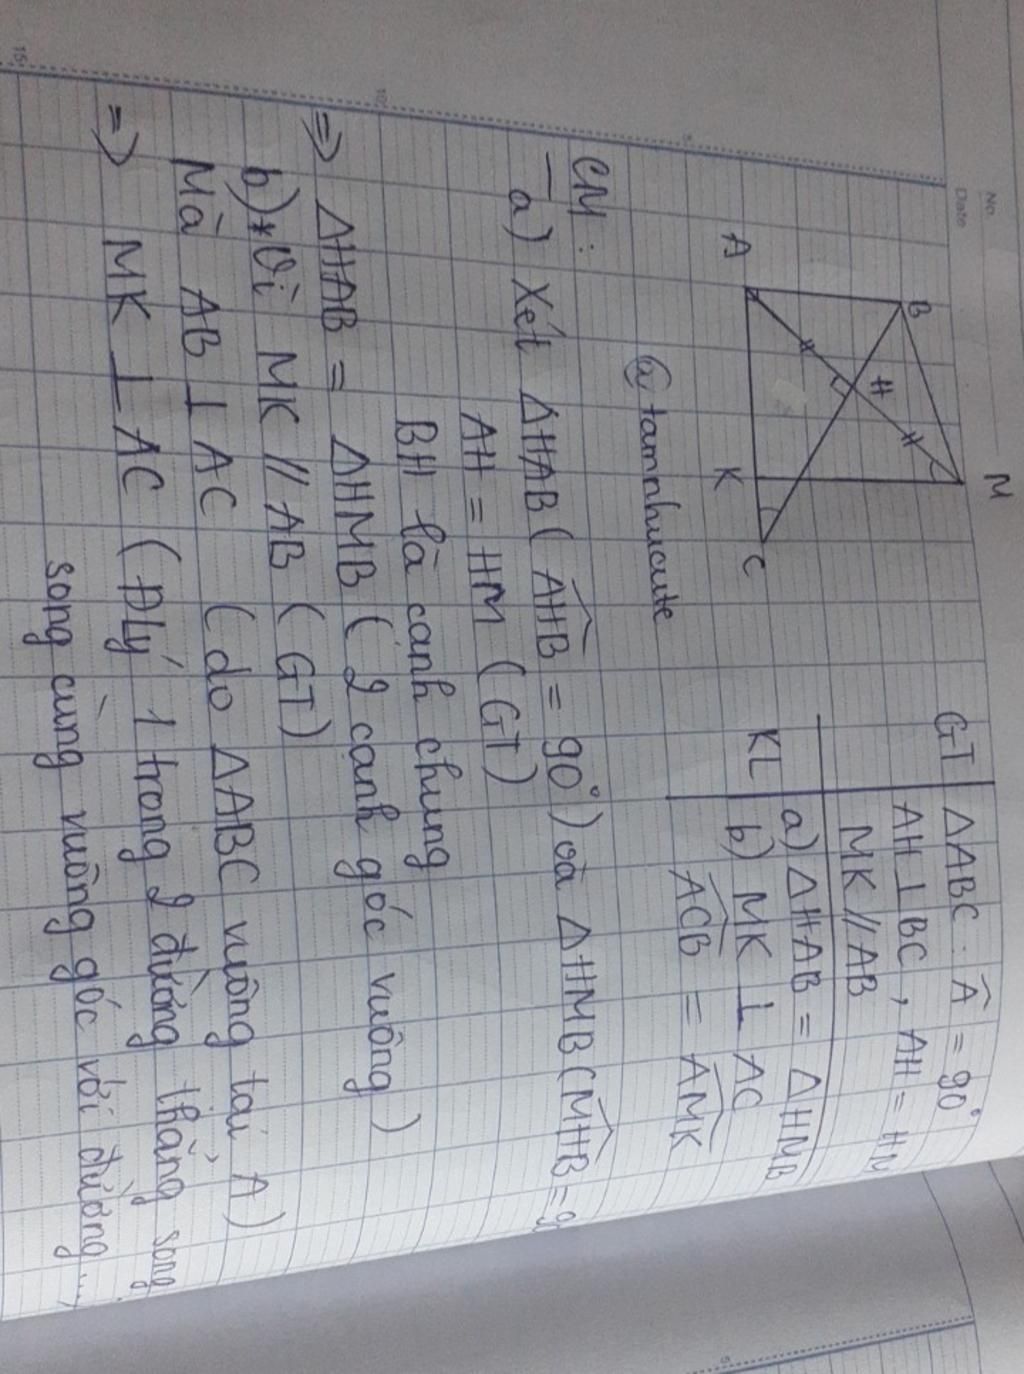 No.
Date
B
M
H
A
K
C
GT ΔABC: Â = 90°
AH ⊥ BC, AH = HM
MK // AB
KL a) ΔHAB = ΔHMB
b) MK ⊥ AC
ACB = AMK
@tamnhucute
CM:
a) Xét ΔHAB (AHB = 90°) và ΔHMB (MHB =
AH = HM (GT)
BH là cạnh chung
=> ΔHAB = ΔHMB (2 cạnh góc vuông)
b) * Vì MK // AB (GT)
Mà AB ⊥ AC (do ΔABC vuông tại A)
=> MK ⊥ AC (Đlý 1 trong 2 đường thẳng song
song cùng vuông góc với đường...)
5
10
15
5